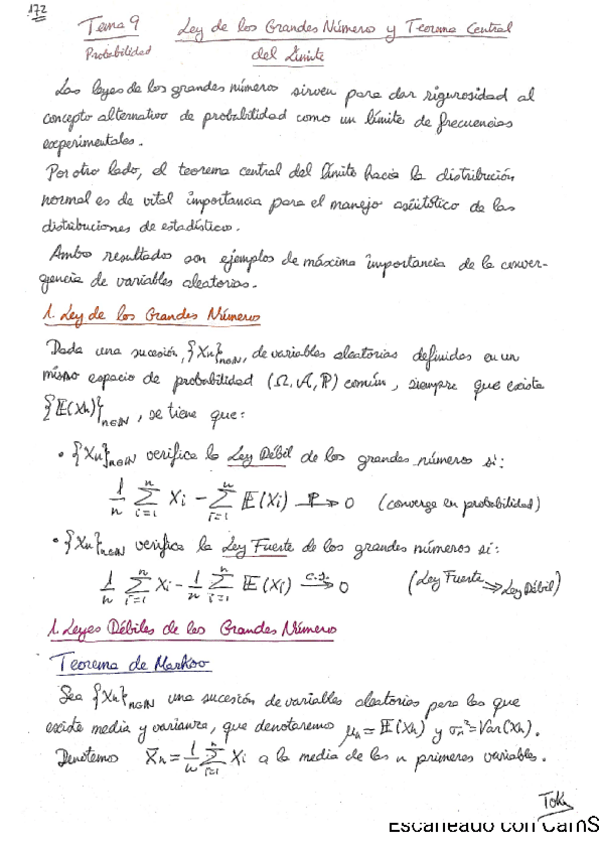 172
Tema 9 Ley de los Grandes Números y Teorema Central
Probabilidad del Límite
Las leyes de los grandes números sirven para dar rigurosidad al
concepto alternativo de probabilidad como un límite de frecuencias
experimentales.
Por otro lado, el teorema central del límite hacia la distribución
normal es de vital importancia para el manejo asintótico de las
distribuciones de estadístico.
Ambos resultados son ejemplos de máxima importancia de la conver-
gencia de variables aleatorias.
1. Ley de los Grandes Números
Dada una sucesión, {Xn}n∈ℕ, de variables aleatorias definidas en un
mismo espacio de probabilidad (Ω, 𝒜, ℙ) común, siempre que exista
{𝔼(Xn)}n∈ℕ, se tiene que:
• {Xn}n∈ℕ verifica la Ley Débil de los grandes números si:
1/n ∑_{i=1}^{n} Xi − ∑_{i=1}^{n} 𝔼(Xi) —ℙ→ 0 (converge en probabilidad)
• {Xn}n∈ℕ verifica la Ley Fuerte de los grandes números si:
1/n ∑_{i=1}^{n} Xi − 1/n ∑_{i=1}^{n} 𝔼(Xi) —c.s.→ 0 (Ley Fuerte ⇒ Ley Débil)
1. Leyes Débiles de los Grandes Números
Teorema de Markov
Sea {Xn}n∈ℕ una sucesión de variables aleatorias para las que
existe media y varianza, que denotaremos μn = 𝔼(Xn) y σn² = Var(Xn).
Denotemos X̄n = 1/n ∑_{i=1}^{n} Xi a la media de las n primeras variables.
Escaneado con CamS